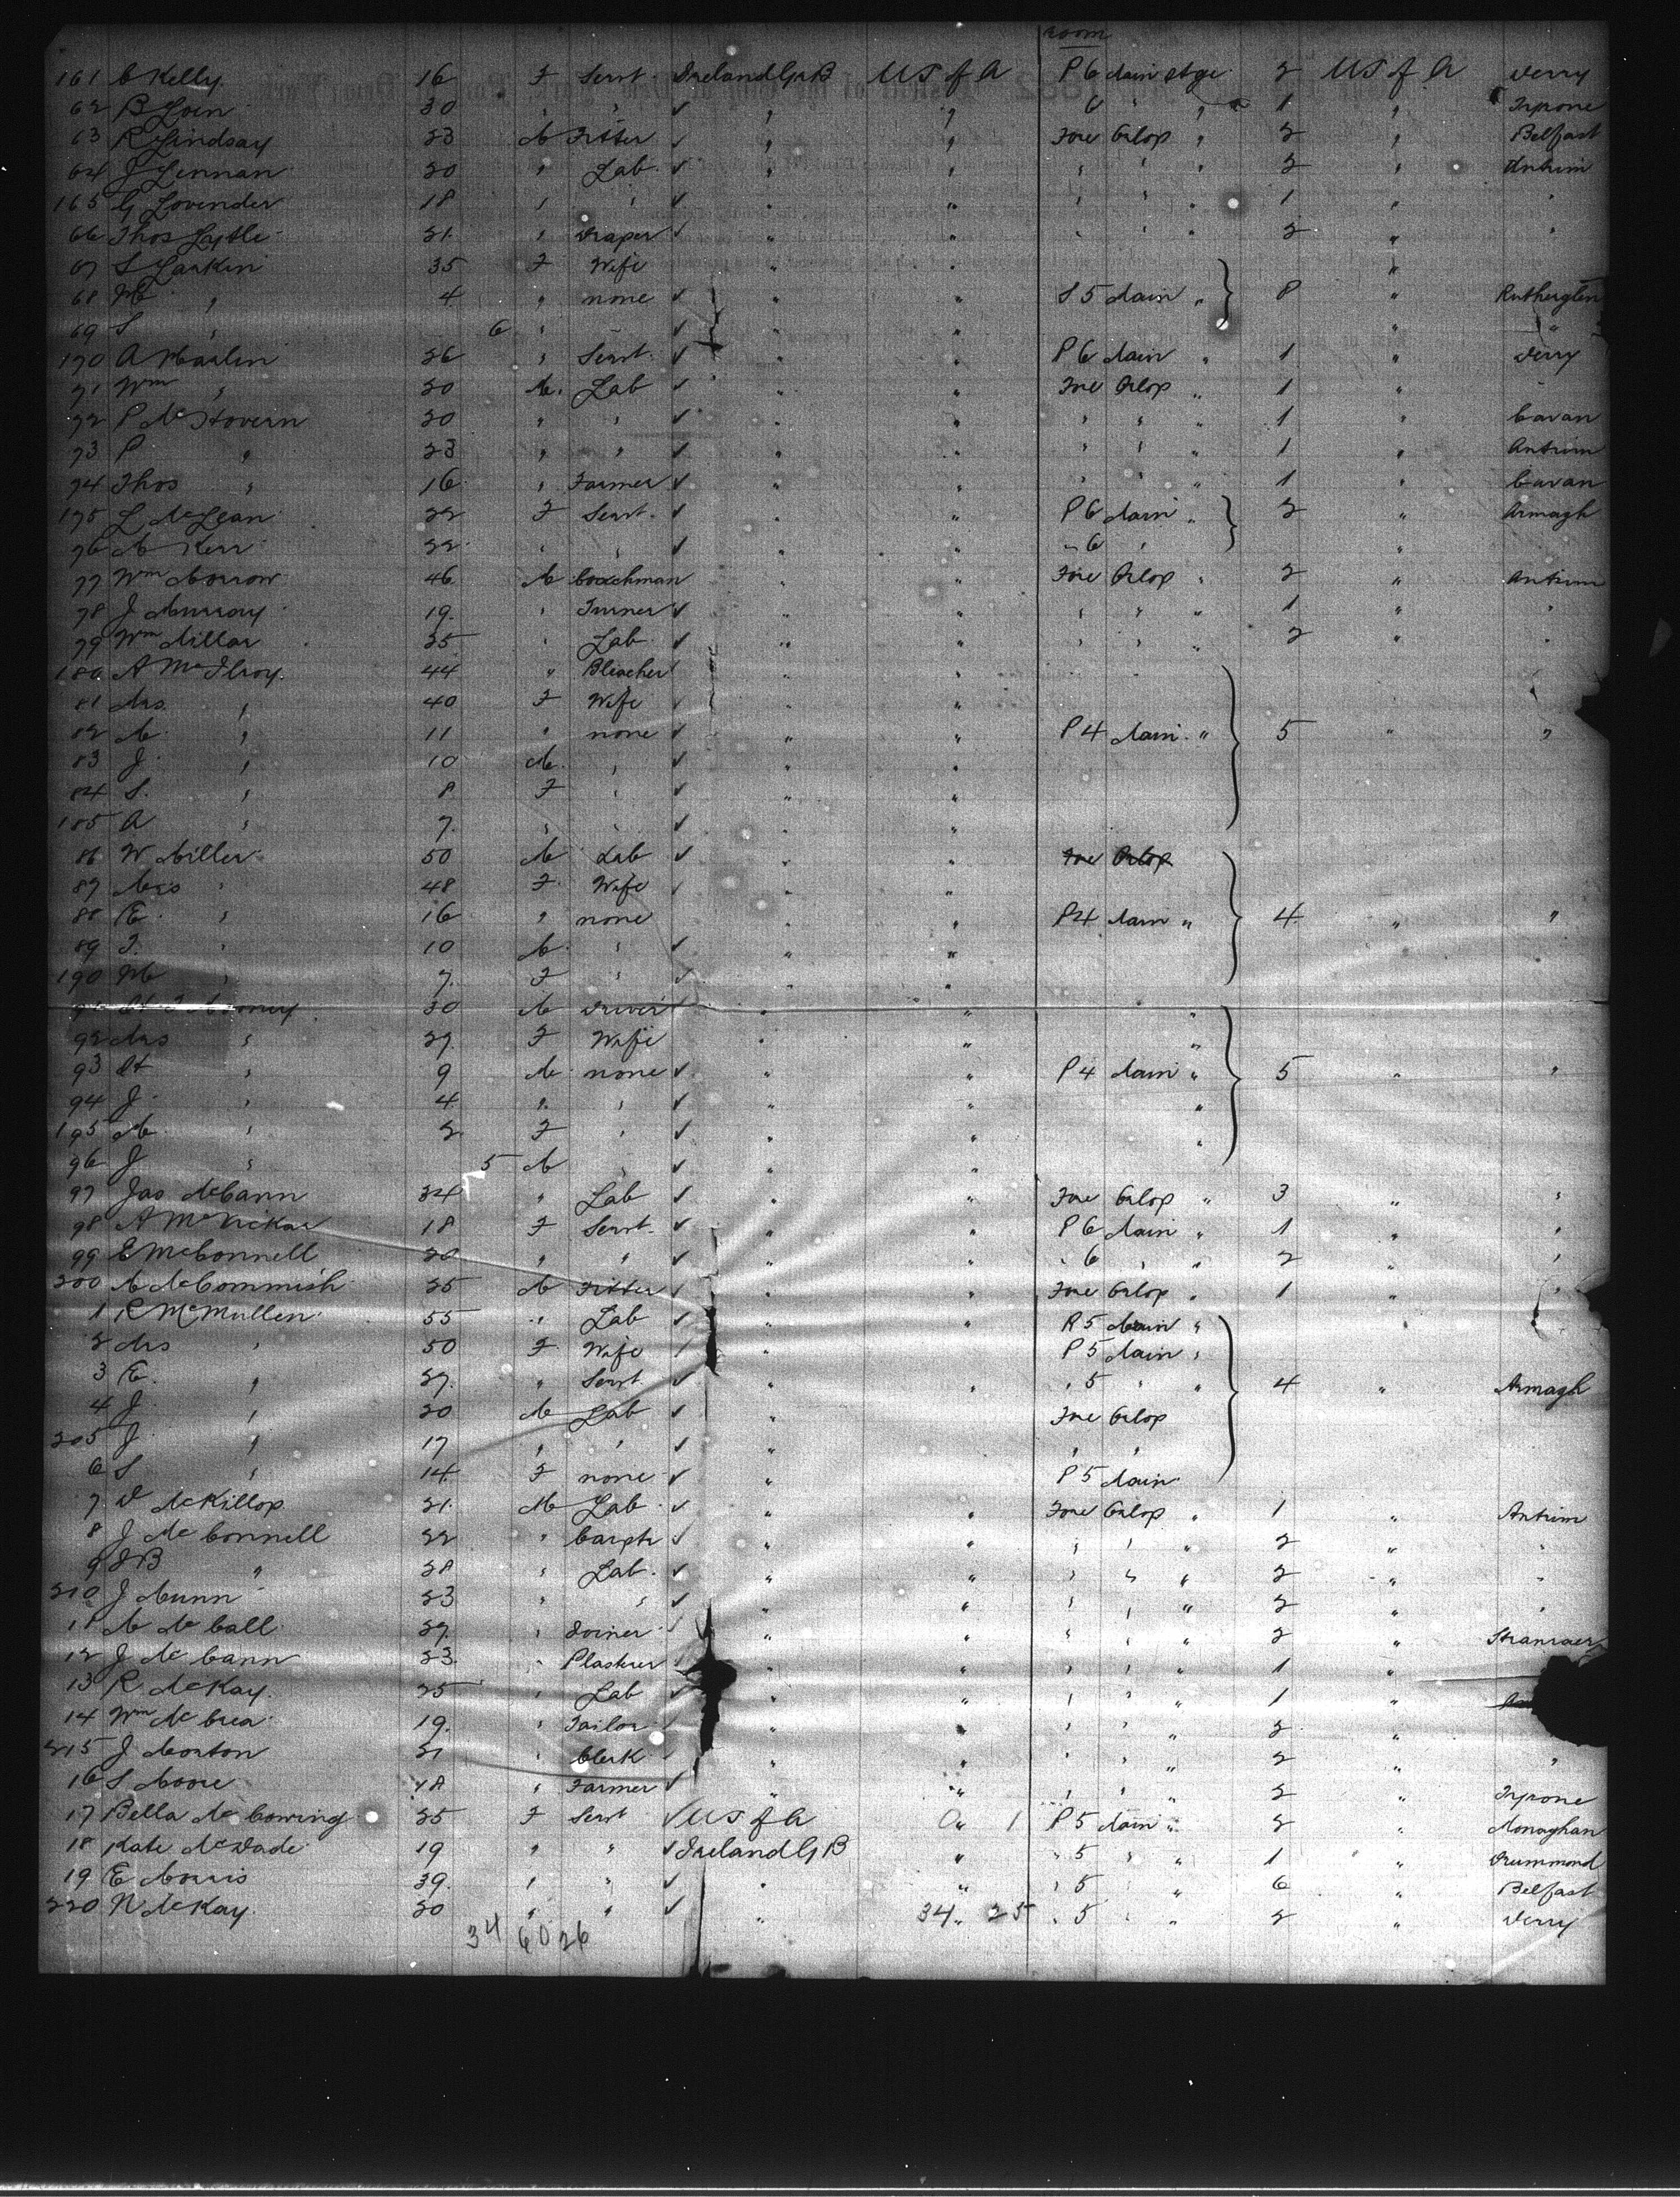 Room
161 C Kelly 16 F Servt Ireland G B US of A P 6 Main stge 2 US of A Derry
62 B Loin 30 " " " " 6 " " 1 " Tyrone
63 R Lindsay 23 M Fitter " " Fore Orlop " 2 " Belfast
64 J Lennan 20 " Lab " " " " " 2 " Antrim
165 G Lovender 18 " " " " " " " 1 " "
66 Thos Lytle 21 " Draper " " " " " 2 " "
67 S Larkin 35 F Wife " " "
68 M " 4 " none " " S 5 Main " 8 " Rutherglen
69 S " 6 " " " " " "
170 A Martin 26 " Servt " " P 6 Main " 1 " Derry
71 Wm " 20 M Lab " " Fore Orlop " 1 " "
72 P McGovern 20 " " " " " " " 1 " Cavan
73 P " 23 " " " " " " " 1 " Antrim
74 Thos " 16 " Farmer " " " " " 1 " Cavan
175 L McLean 22 F Servt " " P 6 Main " 2 " Armagh
76 M Kerr 22 " " " " " 6 " "
77 Wm Morrow 46 M Coachman " " Fore Orlop " 2 " Antrim
78 J Murray 19 " Turner " " " " " 1 " "
79 Wm Millar 25 " Lab " " " " " 2 " "
180 A McIlroy 44 " Bleacher " "
81 Mrs " 40 F Wife " "
82 M " 11 " none " " P 4 Main " 5 " "
83 J " 10 M " " "
84 S " 8 F " " "
185 A " 7 " " " "
86 W Miller 50 M Lab " " Fore Orlop
87 Mrs " 48 F Wife " "
88 E " 16 " none " " P 4 Main " 4 " "
89 T " 10 M " " "
190 M " 7 F " " "
30 M Driver " " "
92 Mrs " 27 F Wife " " "
93 " 9 M none " " P 4 Main " 5 " "
94 J " 4 " " " " "
195 M " 2 F " " " "
96 J " 5 M " " "
97 Jas McCann 24 " Lab " " Fore Orlop " 3 " "
98 A McVickar 18 F Servt " " P 6 Main " 1 " "
99 E McConnell 20 " " " " " 6 " " 2 " "
200 M McCommish 25 M Fitter " " Fore Orlop " 1 " "
1 R McMullen 55 " Lab " " P 5 Main "
2 Mrs " 50 F Wife " P 5 Main "
3 E " 27 " Servt " " " 5 " " 4 " Armagh
4 J " 20 M Lab " Fore Orlop
205 J " 17 " " " " "
6 S " 14 F none " P 5 Main
7 D McKillop 21 M Lab " " Fore Orlop " 1 " Antrim
8 J McConnell 22 " Carptr " " " " " 2 " "
9 J B " 28 " Lab " " " " " 2 " "
210 J Munn 23 " " " " " " " 2 " "
11 M McCall 27 " Joiner " " " " " 2 " Stranraer
12 J McCann 23 " Plasterer " " " " " 1 "
13 R McKay 25 " Lab " " " " " 1 "
14 Wm McCrea 19 " Tailor " " " " " 2 "
215 J Morton 21 " Clerk " " " " " 2 " "
16 S Moore 18 " Farmer " " " " " 2 " Tyrone
17 Bella McCowing 25 F Servt US of A " 1 P 5 Main " 2 " Monaghan
18 Kate McDade 19 " " Ireland G B " " 5 " " 1 " Drummond
19 E Morris 39 " " " " " 5 " " 6 " Belfast
220 N McKay 20 " " " 34 " 25 " 5 " " 2 " Derry
34 60 26